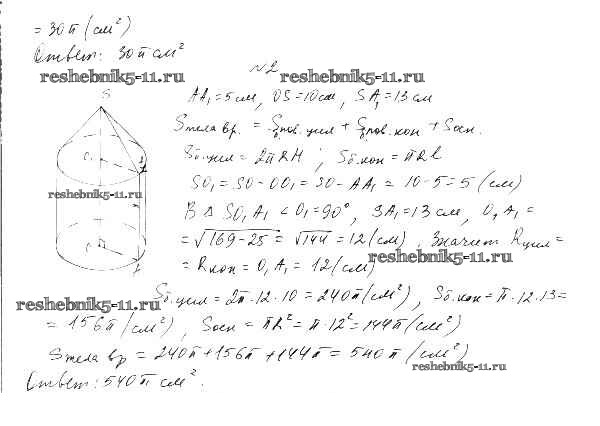 = 30π (см²)
Ответ: 30π см²
№2
reshebnik5-11.ru
reshebnik5-11.ru
S
AA₁ = 5см, OS = 10см, SA₁ = 13 см
Sтела вр. = Sпов. цил + Sпов. кон + Sосн.
Sб.цил = 2πRH ; Sб.кон = πRl
O₁
reshebnik5-11.ru
SO₁ = SO - OO₁ = SO - AA₁ = 10 - 5 = 5 (см)
В Δ SO₁A₁ ∠O₁ = 90°, SA₁ = 13 см, O₁A₁ =
= √169-25 = √144 = 12 (см), Значит Rцил =
= Rкон = O₁A₁ = 12 (см)
reshebnik5-11.ru
reshebnik5-11.ru
Sб.цил = 2π·12·10 = 240π (см²), Sб.кон = π·12·13 =
= 156π (см²), Sосн = πR² = π·12² = 144π (см²)
Sтела вр = 240π + 156π + 144π = 540π (см²)
reshebnik5-11.ru
Ответ: 540π см².